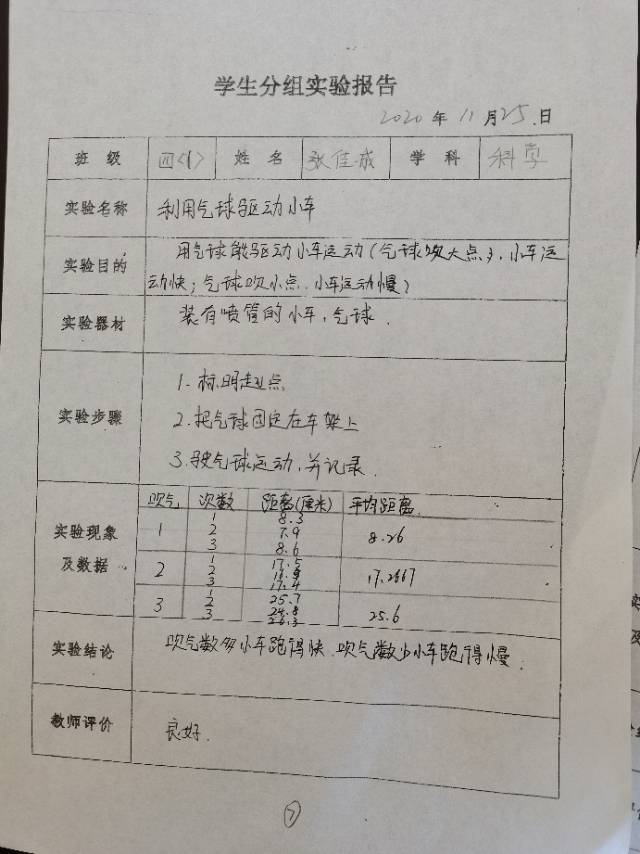 学生分组实验报告
2020 年 11 月 25 日
班级 四<1> 姓名 张佳成 学科 科学
实验名称 利用气球驱动小车
实验目的 用气球能驱动小车运动(气球吹大点,小车运
动快;气球吹小点,小车运动慢)
实验器材 装有喷管的小车,气球.
实验步骤
1.标明起点
2.把气球固定在车架上
3.气球运动,并记录.
实验现象及数据
吹气 次数 距离(厘米) 平均距离
1 1 8.3 8.26
2 7.9
3 8.6
2 1 17.5 17.2667
2
3 17.4
3 1 25.7 25.6
2 24.8
3 26.3
实验结论 吹气数多小车跑得快.吹气数少小车跑得慢.
教师评价 良好.
7